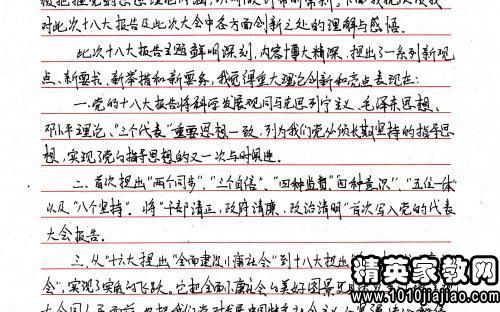 对此次十八大报告及此次大会中各方面创新之处的理解与感悟。
此次十八大报告主题鲜明深刻，内容博大精深，提出了一系列新观
点、新要求、新举措和新要务，我觉得重大理论创新和亮点表现在：
一、党的十八大报告将科学发展观同马克思列宁主义、毛泽东思想、
邓小平理论、“三个代表”重要思想一致，列为我们党必须长期坚持的指导思
想，实现了党的指导思想的又一次与时俱进。
二、首次提出“两个同步”、“三个自信”、“四种监督”“四种意识”、“五位一体”
以及“八个坚持”。将“干部清正，政府清廉，政治清明”首次写入党的代表
大会报告。
三、从“十六大提出“全面建设小康社会”到十八大提出
会”，实现了实质的飞跃。它把全面小康社会的美好图景
精英家教网
www.1010jiajiao.com